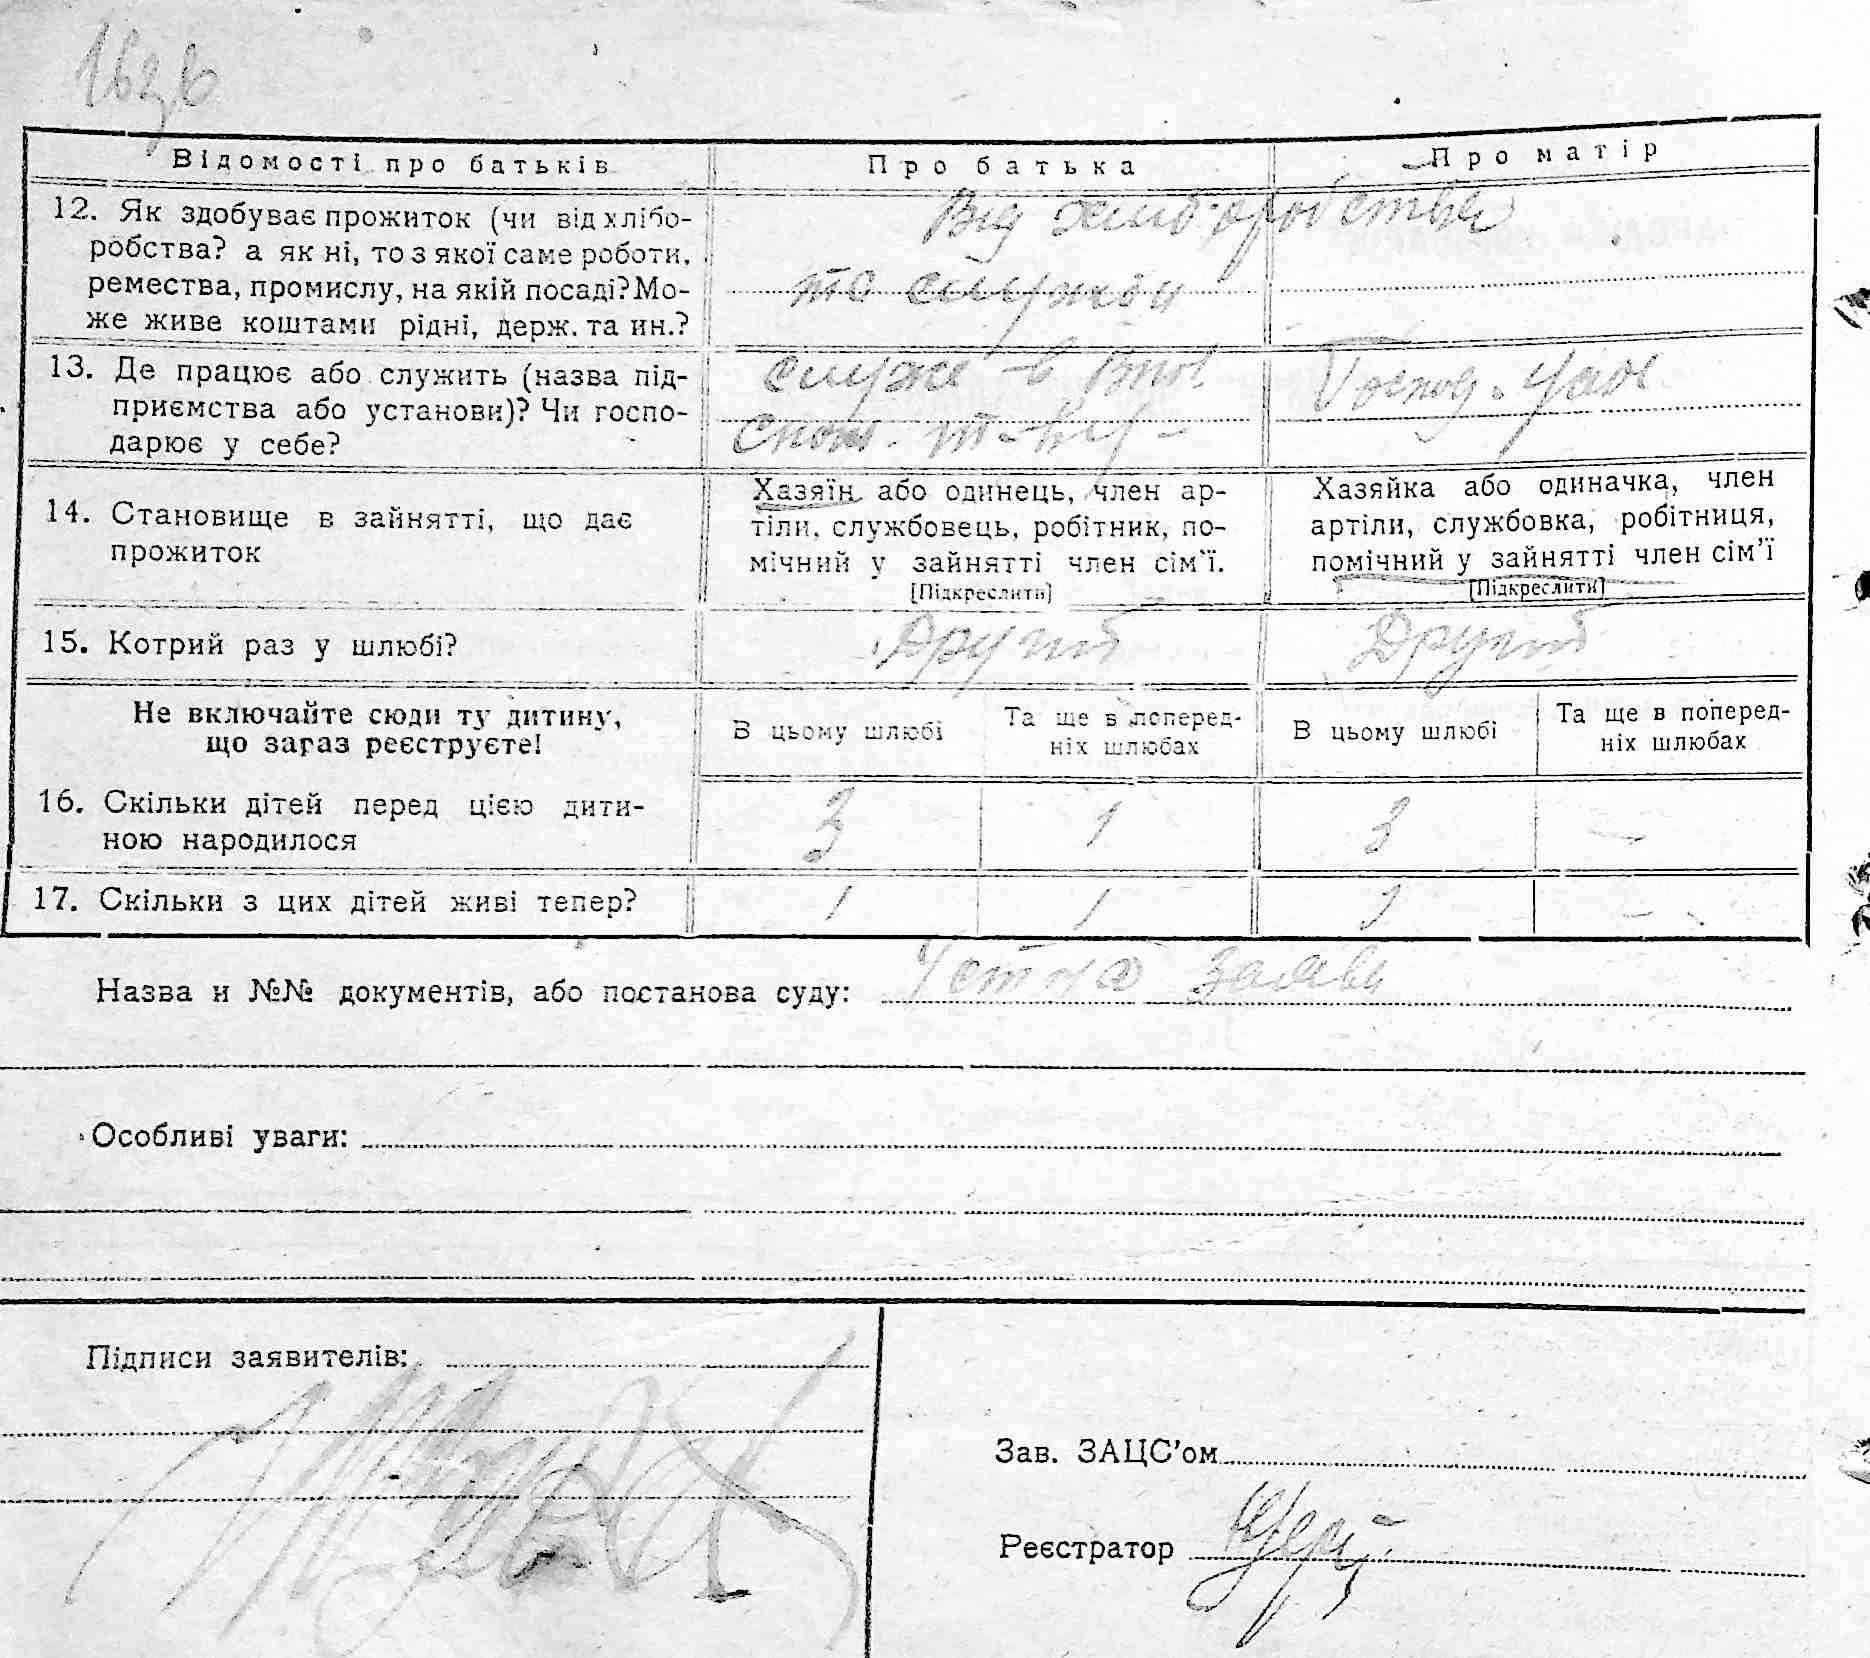 Відомості про батьків
Про батька
Про матір
12. Як здобуває прожиток (чи від хлібо-
робства? а як ні, то з якої саме роботи,
ремества, промислу, на якій посаді? Мо-
же живе коштами рідні, держ. та ин.?
Від хлиборобства
та служби
13. Де працює або служить (назва під-
приємства або установи)? Чи госпо-
дарює у себе?
служе в
Спож. т-ву -
Господ.
14. Становище в зайнятті, що дає
прожиток
Хазяїн або одинець, член ар-
тіли, службовець, робітник, по-
мічний у зайнятті член сім'ї.
[Підкреслити]
Хазяйка або одиначка, член
артіли, службовка, робітниця,
помічний у зайнятті член сім'ї
[Підкреслити]
15. Котрий раз у шлюбі?
Другий
Другий
Не включайте сюди ту дитину,
що зараз реєструєте!
В цьому шлюбі
Та ще в поперед-
ніх шлюбах
В цьому шлюбі
Та ще в поперед-
ніх шлюбах
16. Скільки дітей перед цією дити-
ною народилося
3
1
3
–
17. Скільки з цих дітей живі тепер?
1
1
1
–
Назва и №№ документів, або постанова суду: Устна заява
Особливі уваги:
Підписи заявителів:
Зав. ЗАЦС'ом
Реєстратор